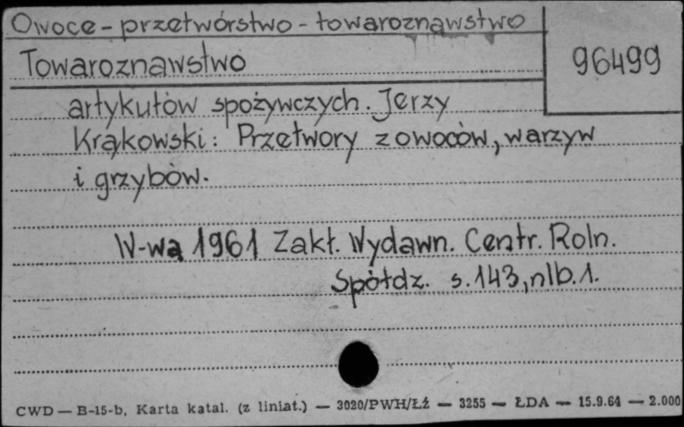 Owoce - przetwórstwo - towaroznawstwo
Towaroznawstwo
96499
artykułów spożywczych. Jerzy
Krąkowski: Przetwory z owoców, warzyw
i grzybów.
W-wa 1961 Zakł. Wydawn. Centr. Roln.
Spółdz. s. 143, nlb. 1.
CWD — B-15-b, Karta katal. (z liniat.) — 3020/PWH/ŁŹ — 3255 — ŁDA — 15.9.64 — 2.000